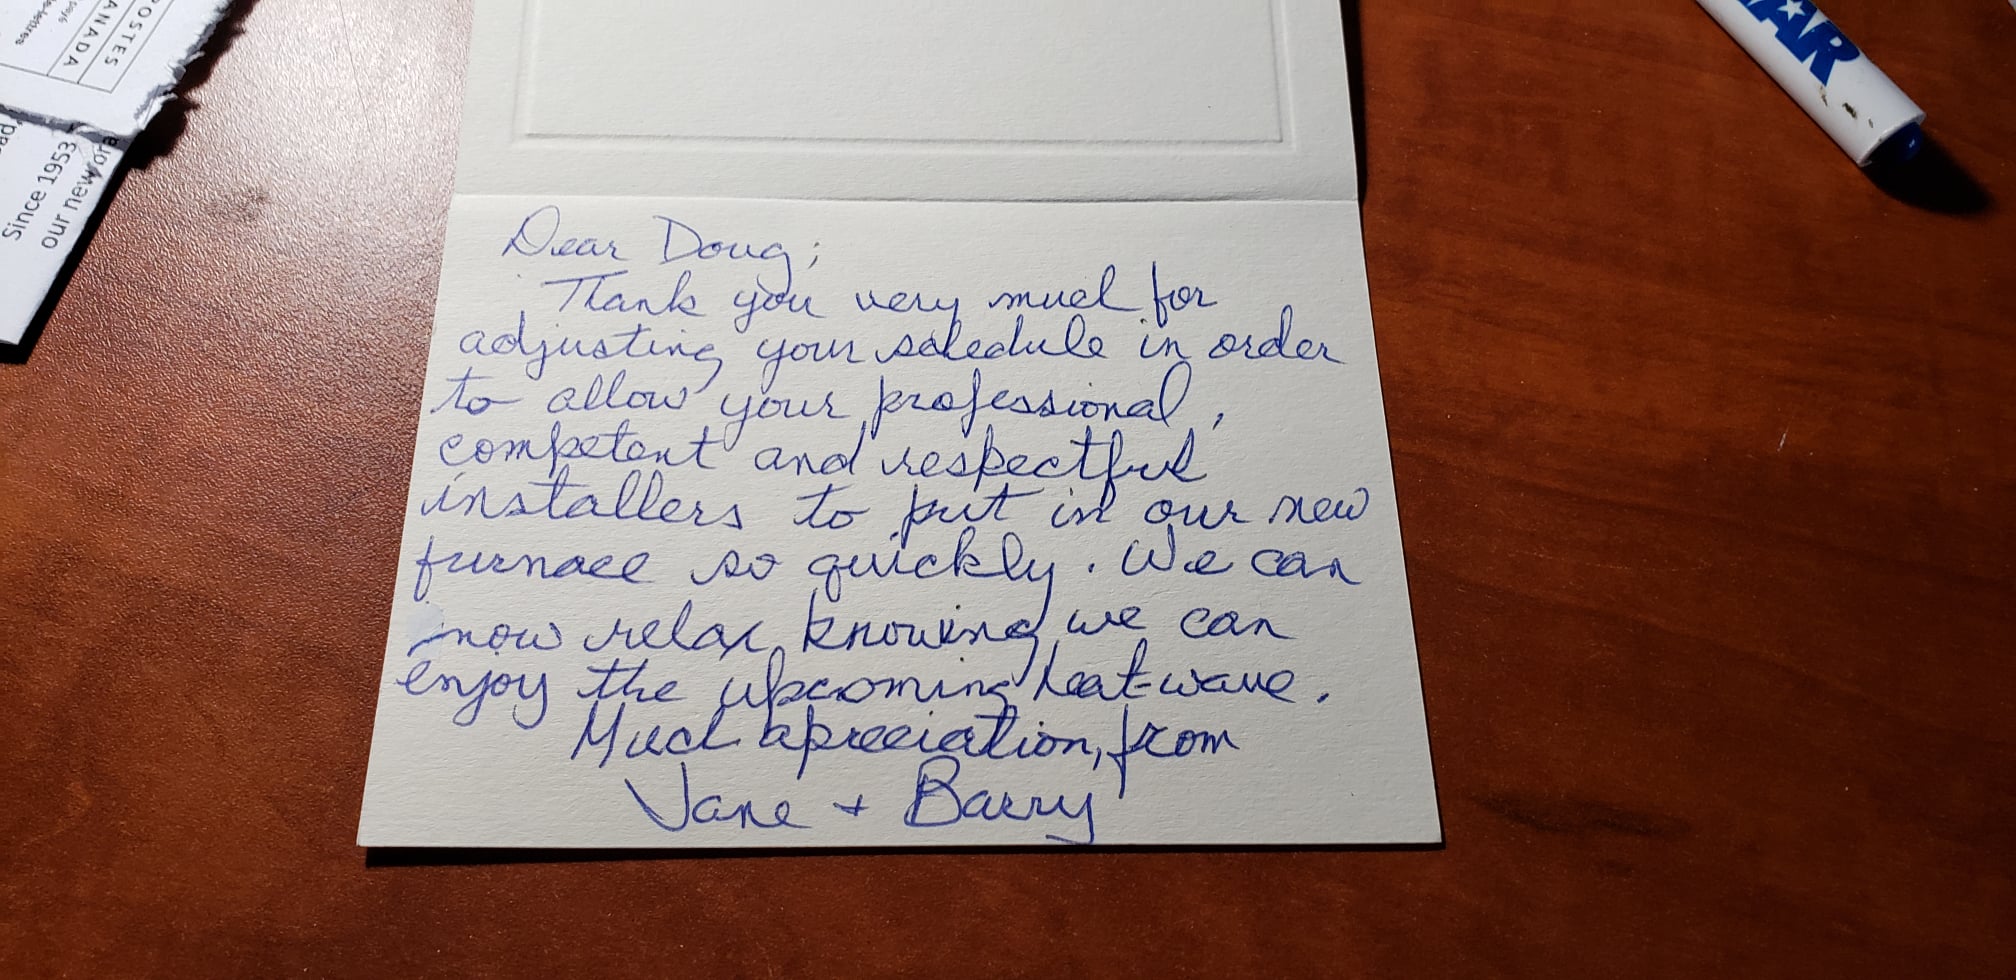 POSTES
CANADA
Since 1953
our new
AR
Dear Doug;
Thank you very much for
adjusting your schedule in order
to allow your professional,
competent and respectful
installers to put in our new
furnace so quickly. We can
now relax knowing we can
enjoy the upcoming heat-wave.
Much apreciation, from
Jane + Barry